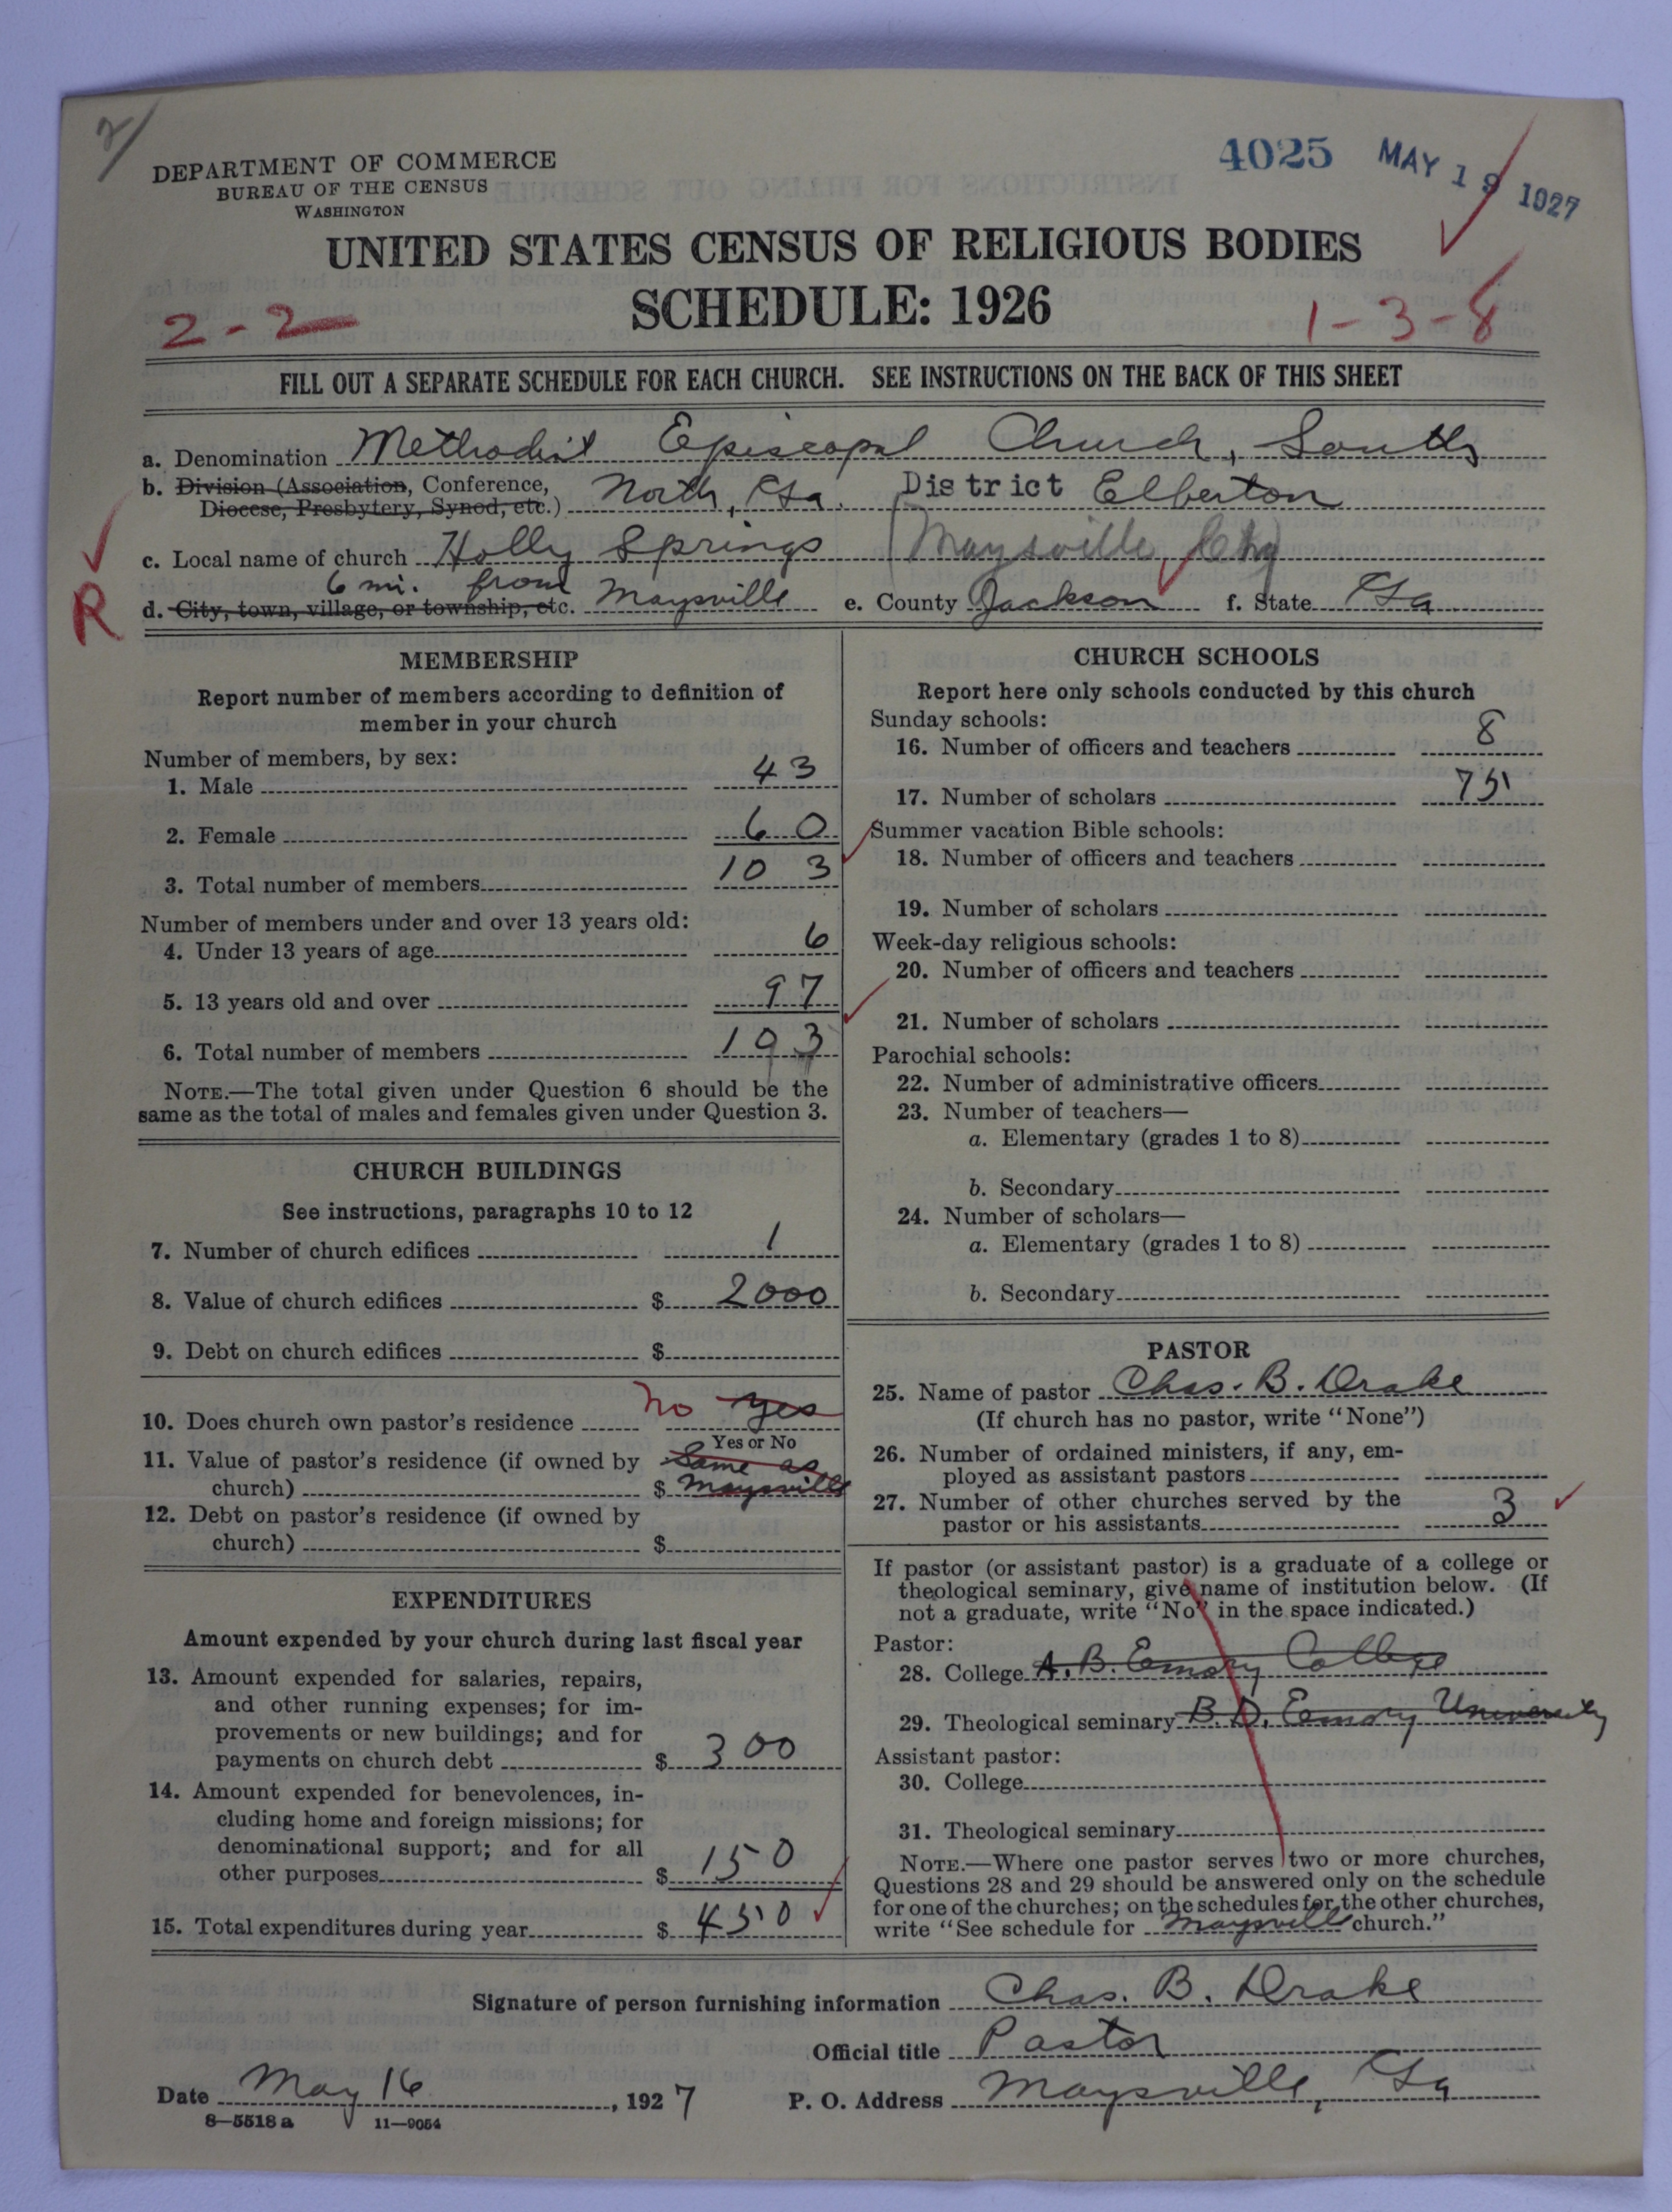 4025 MAY 19 1927
DEPARTMENT OF COMMERCE
BUREAU OF THE CENSUS
WASHINGTON
UNITED STATES CENSUS OF RELIGIOUS BODIES
SCHEDULE: 1926
2-2
1-3-8
FILL OUT A SEPARATE SCHEDULE FOR EACH CHURCH. SEE INSTRUCTIONS ON THE BACK OF THIS SHEET
a. Denomination Methodist Episcopal Church, South
b. Division (Association, Conference, Diocese, Presbytery, Synod, etc.) North, Ga. District Elberton
c. Local name of church Holly Springs (Maysville Chg)
R
6 mi. from
d. City, town, village, or township, etc. Maysville e. County Jackson f. State Ga
MEMBERSHIP
Report number of members according to definition of
member in your church
Number of members, by sex:
1. Male 43
2. Female 60
3. Total number of members 103
Number of members under and over 13 years old:
4. Under 13 years of age 6
5. 13 years old and over 97
6. Total number of members 103
NOTE.—The total given under Question 6 should be the
same as the total of males and females given under Question 3.
CHURCH BUILDINGS
See instructions, paragraphs 10 to 12
7. Number of church edifices 1
8. Value of church edifices $ 2000
9. Debt on church edifices $
10. Does church own pastor's residence No Yes
Yes or No
11. Value of pastor's residence (if owned by
church) $ Same as Maysville
12. Debt on pastor's residence (if owned by
church) $
EXPENDITURES
Amount expended by your church during last fiscal year
13. Amount expended for salaries, repairs,
and other running expenses; for im-
provements or new buildings; and for
payments on church debt $ 300
14. Amount expended for benevolences, in-
cluding home and foreign missions; for
denominational support; and for all
other purposes $ 150
15. Total expenditures during year $ 450
CHURCH SCHOOLS
Report here only schools conducted by this church
Sunday schools:
16. Number of officers and teachers 8
17. Number of scholars 75
Summer vacation Bible schools:
18. Number of officers and teachers
19. Number of scholars
Week-day religious schools:
20. Number of officers and teachers
21. Number of scholars
Parochial schools:
22. Number of administrative officers
23. Number of teachers—
a. Elementary (grades 1 to 8)
b. Secondary
24. Number of scholars—
a. Elementary (grades 1 to 8)
b. Secondary
PASTOR
25. Name of pastor Chas. B. Drake
(If church has no pastor, write "None")
26. Number of ordained ministers, if any, em-
ployed as assistant pastors
27. Number of other churches served by the
pastor or his assistants 3
If pastor (or assistant pastor) is a graduate of a college or
theological seminary, give name of institution below. (If
not a graduate, write "No" in the space indicated.)
Pastor:
28. College A.B. Emory College
29. Theological seminary B.D. Emory University
Assistant pastor:
30. College
31. Theological seminary
NOTE.—Where one pastor serves two or more churches,
Questions 28 and 29 should be answered only on the schedule
for one of the churches; on the schedules for the other churches,
write "See schedule for Maysville church."
Signature of person furnishing information Chas. B. Drake
Official title Pastor
Date May 16, 1927 P. O. Address Maysville, Ga
8—5518 a 11—9054